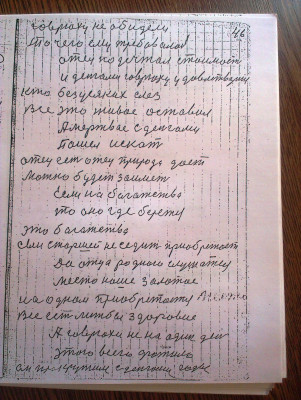 говруху не обидели
46
То чего ему требовалос
отец подечтал стоимост
и деньгами говруху удовлетворил
кто без всяких слез
Все это живое оставил
А мертвае с деньгами
Пошел искат
отец ест отец природа дает
Можно будет заимет
Если на богатство
то оно где берету
это богатство
Если старшей не сидит приобретает
Да отца родного слушател
Место наше Золотое
на одном приобретату
Все ест либы здоровие
А говрюхи не на один ден
этого всего
он с деньгами